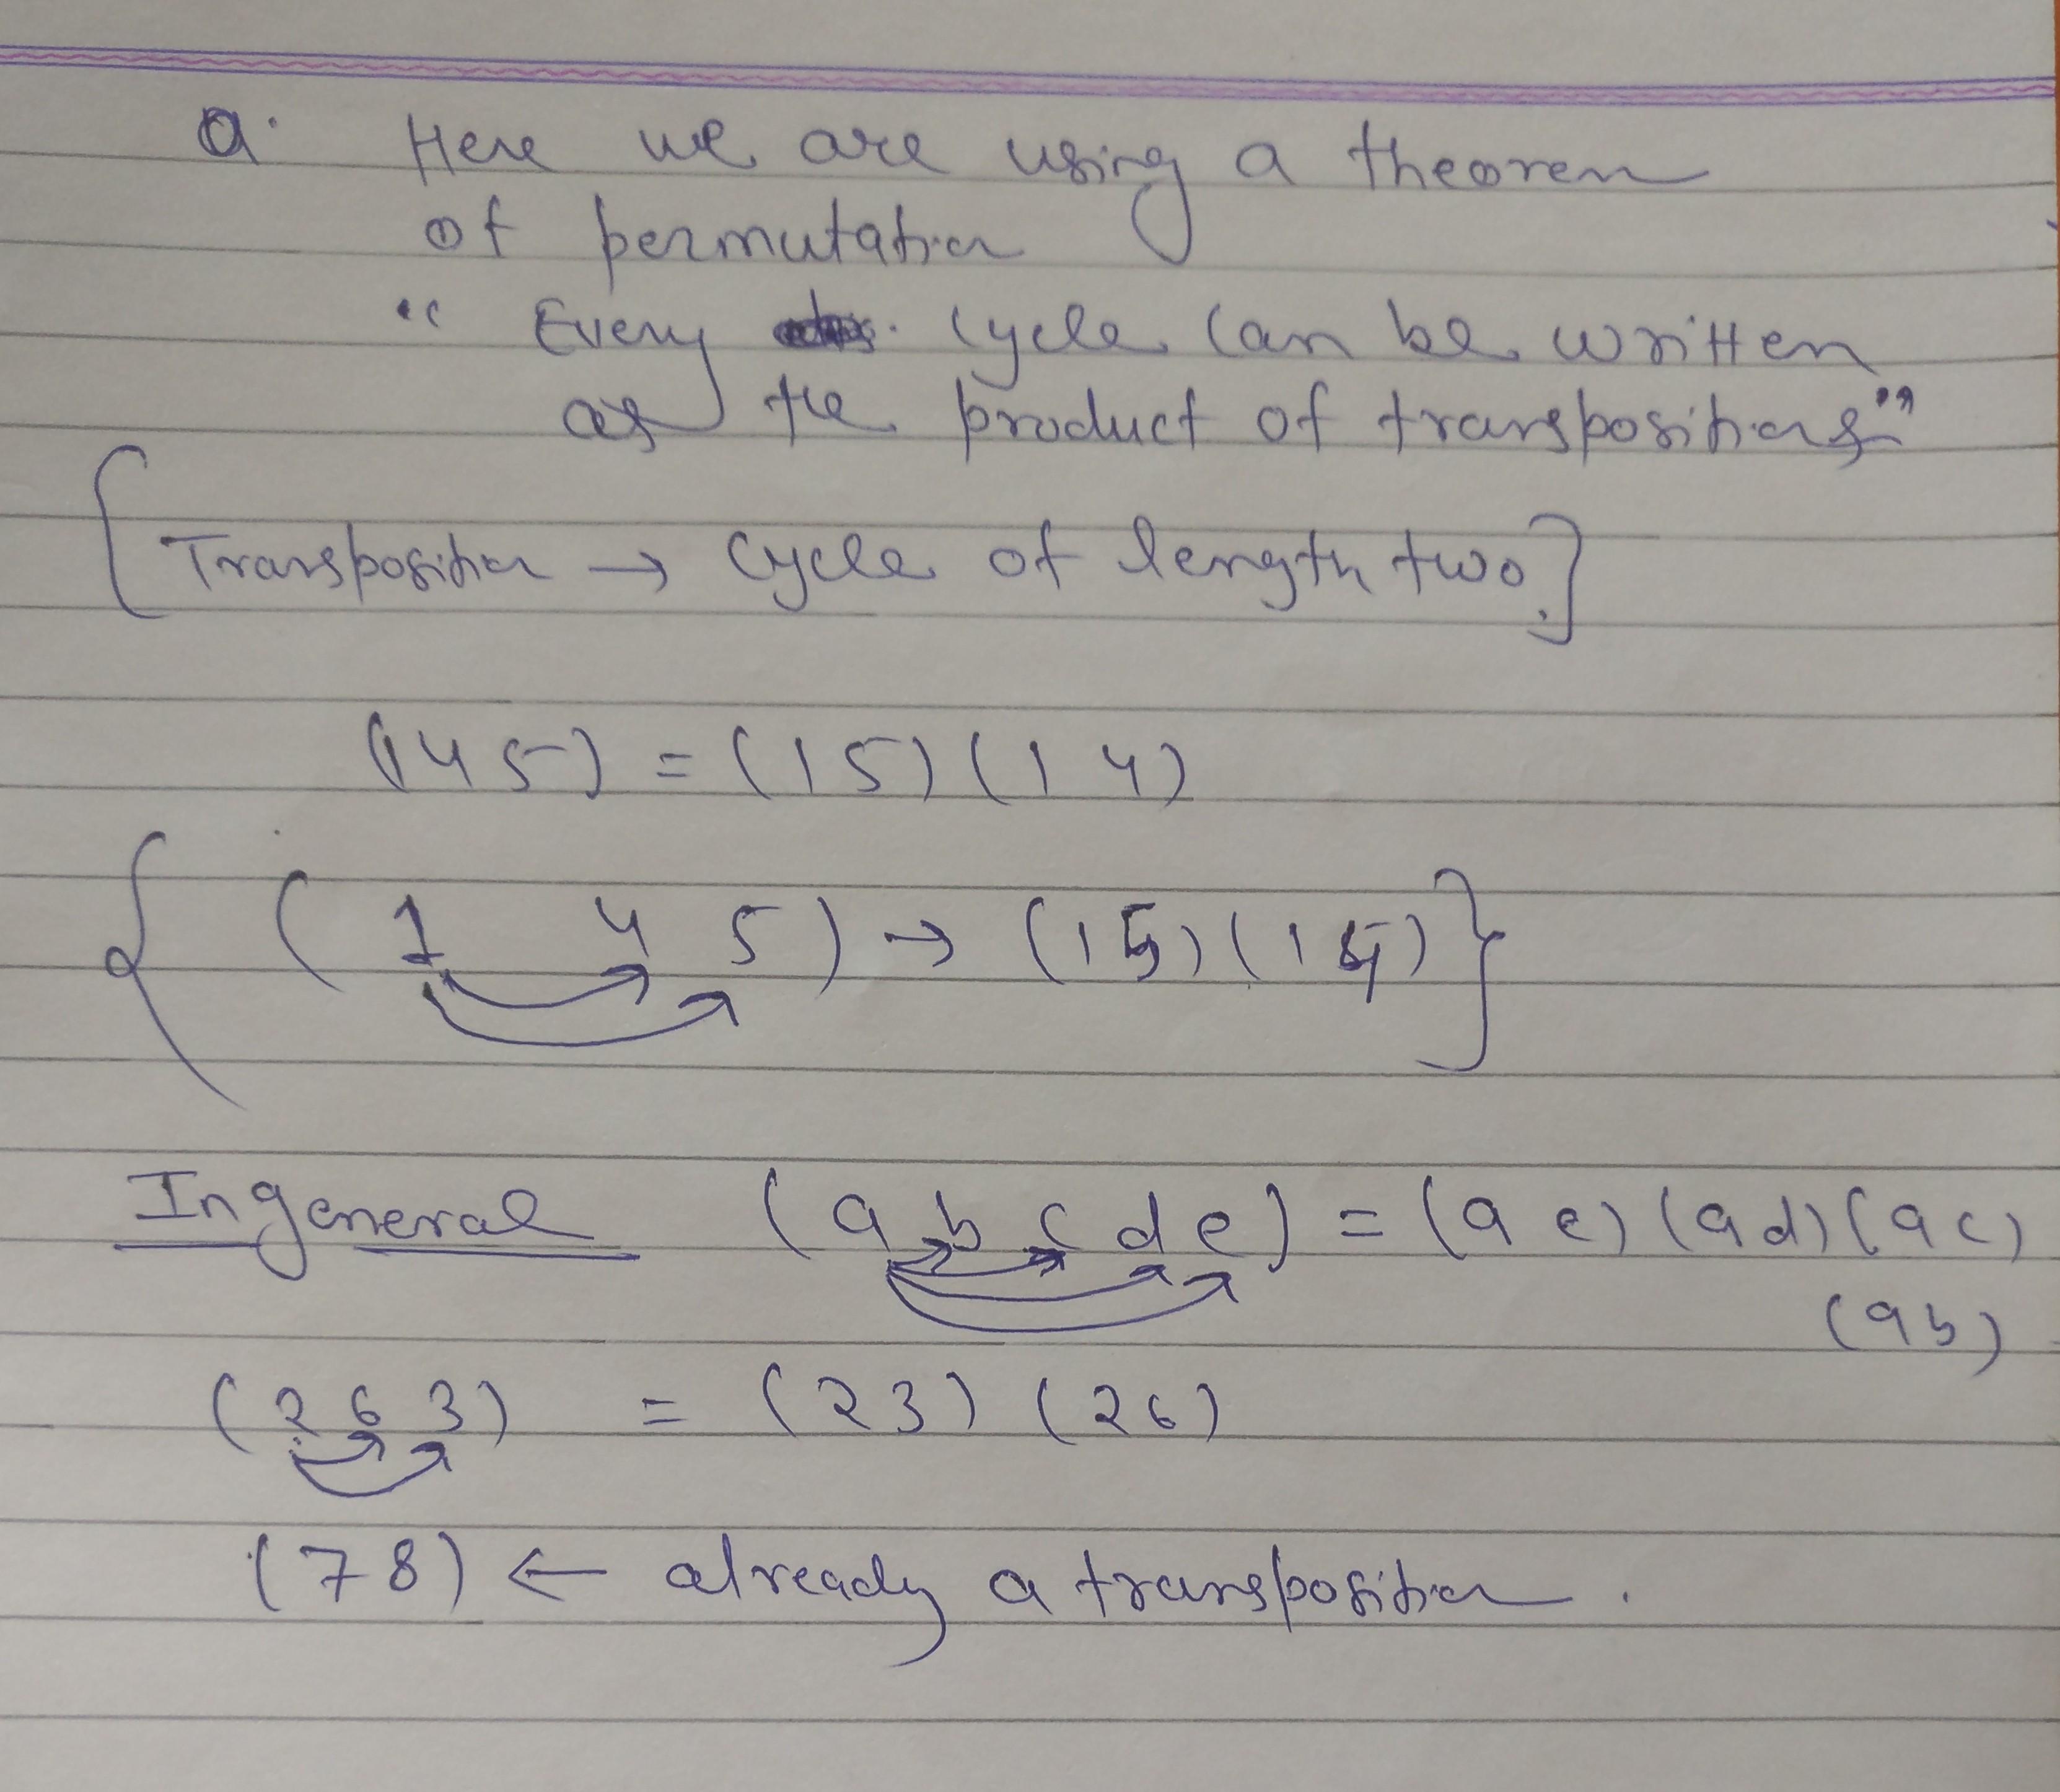 a. Here we are using a theorem
of permutation
“ Every cycle can be written
as the product of transpositions”
[Transposition → cycle of length two.]
(1 4 5) = (1 5) (1 4)
{ (1 4 5) → (1 5) (1 4) }
In general (a b c d e) = (a e) (a d) (a c)
(a b)
(2 6 3) = (2 3) (2 6)
(7 8) ← already a transposition.